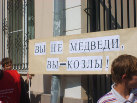 ВЫ НЕ МЕДВЕДИ,
ВЫ-КОЗЛЫ!